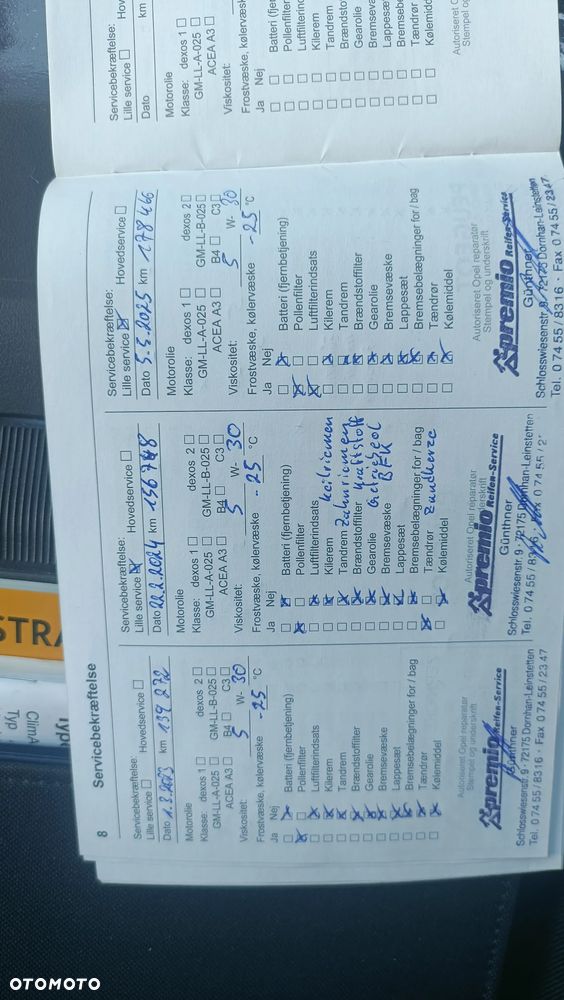 8
Servicebekræftelse
Servicebekræftelse:
Lille service ☐ Hovedservice ☐
Dato 1.3.2023 km 139 272
Motorolie
Klasse: dexos 1 ☐ dexos 2 ☐
GM-LL-A-025 ☐ GM-LL-B-025 ☐
ACEA A3 ☐ B4 ☐ C3 ☐
Viskositet: 5 W- 30
Frostvæske, kølervæske -25 °C
Ja Nej
Batteri (fjernbetjening)
Pollenfilter
Luftfilterindsats
Kilerem
Tandrem
Brændstoffilter
Gearolie
Bremsevæske
Lappesæt
Bremsebelægninger for / bag
Tændrør
Kølemiddel
Autoriseret Opel reparatør
Stempel og underskrift
premio Reifen-Service
Günthner
Schlosswiesenstr. 9 · 72175 Dornhan-Leinstetten
Tel. 0 74 55 / 8316 · Fax 0 74 55 / 23 47
Servicebekræftelse:
Lille service ☒ Hovedservice ☐
Dato 22.2.2024 km 156748
Motorolie
Klasse: dexos 1 ☐ dexos 2 ☐
GM-LL-A-025 ☐ GM-LL-B-025 ☐
ACEA A3 ☐ B4 ☐ C3 ☐
Viskositet: 5 W- 30
Frostvæske, kølervæske -25 °C
Ja Nej
Batteri (fjernbetjening)
Pollenfilter
Luftfilterindsats
Kilerem Keilriemen
Tandrem Zahnriemen
Brændstoffilter Kraftstoff
Gearolie
Bremsevæske
Lappesæt
Bremsebelægninger for / bag
Tændrør Zündkerze
Kølemiddel
Autoriseret Opel reparatør
premio Reifen-Service
Günthner
Schlosswiesenstr. 9 · 72175 Dornhan-Leinstetten
Tel. 0 74 55 /
Servicebekræftelse:
Lille service ☒ Hovedservice ☐
Dato 5.5.2025 km 178466
Motorolie
Klasse: dexos 1 ☐ dexos 2 ☐
GM-LL-A-025 ☐ GM-LL-B-025 ☐
ACEA A3 ☐ B4 ☐ C3 ☐
Viskositet: 5 W- 30
Frostvæske, kølervæske -25 °C
Ja Nej
Batteri (fjernbetjening)
Pollenfilter
Luftfilterindsats
Kilerem
Tandrem
Brændstoffilter
Gearolie
Bremsevæske
Lappesæt
Bremsebelægninger for / bag
Tændrør
Kølemiddel
Autoriseret Opel reparatør
Stempel og underskrift
premio Reifen-Service
Günthner
Schlosswiesenstr. 9 · 72175 Dornhan-Leinstetten
Tel. 0 74 55 / 8316 · Fax 0 74 55 / 23 47
Servicebekræftelse:
Lille service ☐
Dato km
Motorolie
Klasse: dexos 1 ☐
GM-LL-A-025 ☐
ACEA A3 ☐
Viskositet:
Frostvæske,
Ja Nej
Batteri
Pollenfilter
Luftfilterindsats
Kilerem
Tandrem
Gearolie
Lappesæt
Tændrør
Kølemiddel
Autoriseret
Stempel
STRA
OTOMOTO